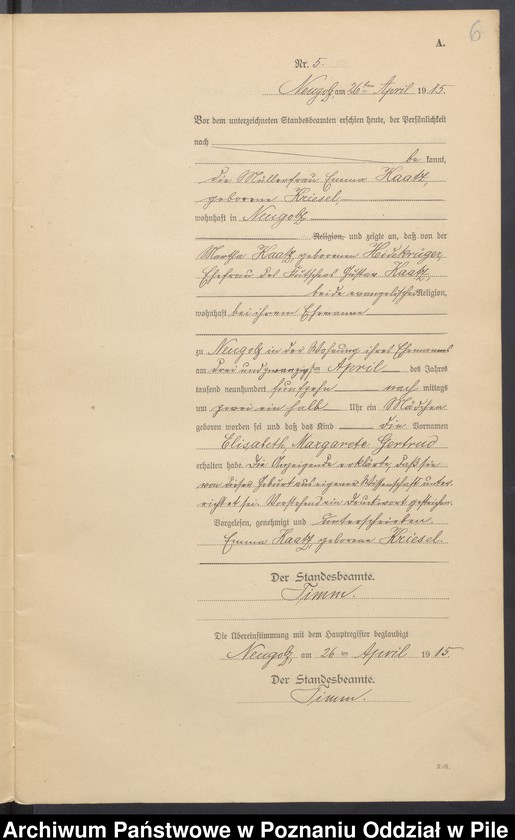 6
A.
Nr. 5.
Neugolz, am 26ten April 1915.
Vor dem unterzeichneten Standesbeamten erschien heute, der Persönlichkeit
nach
be kannt,
die Müllerfrau Emma Haatz,
geborene Kriesel,
wohnhaft in Neugolz
Religion, und zeigte an, daß von der
Martha Haatz, geborenen Heidekrüger,
Ehefrau des Kutschers Gustav Haatz,
beide evangelischer Religion,
wohnhaft bei ihrem Ehemanne
zu Neugolz in der Wohnung ihres Ehemannes
am drei und zwanzigsten April des Jahres
tausend neunhundert fünfzehn nach mittags
um zwei ein halb Uhr ein Mädchen
geboren worden sei und daß das Kind die Vornamen
Elisabeth, Margarete Gertrud
erhalten habe. Die Anzeigende erklärte, daß sie
von dieser Geburt aus eigener Wissenschaft unter-
richtet sei. Vorstehend ein Druckwort gestrichen.
Vorgelesen, genehmigt und unterschrieben.
Emma Haatz, geborene Kriesel.
Der Standesbeamte.
Timm.
Die Übereinstimmung mit dem Hauptregister beglaubigt
Neugolz, am 26ten April 1915.
Der Standesbeamte.
Timm.
Archiwum Państwowe w Poznaniu Oddział w Pile